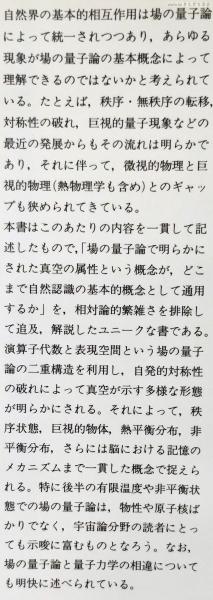 自然界の基本的相互作用は場の量子論
によって統一されつつあり，あらゆる
現象が場の量子論の基本概念によって
理解できるのではないかと考えられて
いる。たとえば，秩序・無秩序の転移，
対称性の破れ，巨視的量子現象などの
最近の発展からもその流れは明らかで
あり，それに伴って，微視的物理と巨
視的物理(熱物理学も含め)とのギャッ
プも狭められてきている。
本書はこのあたりの内容を一貫して記
述したもので，「場の量子論で明らかに
された真空の属性という概念が，どこ
まで自然認識の基本的概念として通用
するか」を，相対論の繁雑さを排除し
て追及，解説したユニークな書である。
演算子代数と表現空間という場の量子
論の二重構造を利用し，自発的対称性
の破れによって真空が示す多様な形態
が明らかにされる。それによって，秩
序状態，巨視的物体，熱平衡分布，非
平衡分布，さらには脳における記憶の
メカニズムまで一貫した概念で捉えら
れる。特に後半の有限温度や非平衡状
態での場の量子論は，物性や原子核ば
かりでなく，宇宙論分野の読者にとっ
ても示唆に富むものとなろう。なお，
場の量子論と量子力学の相違について
も明快に述べられている。